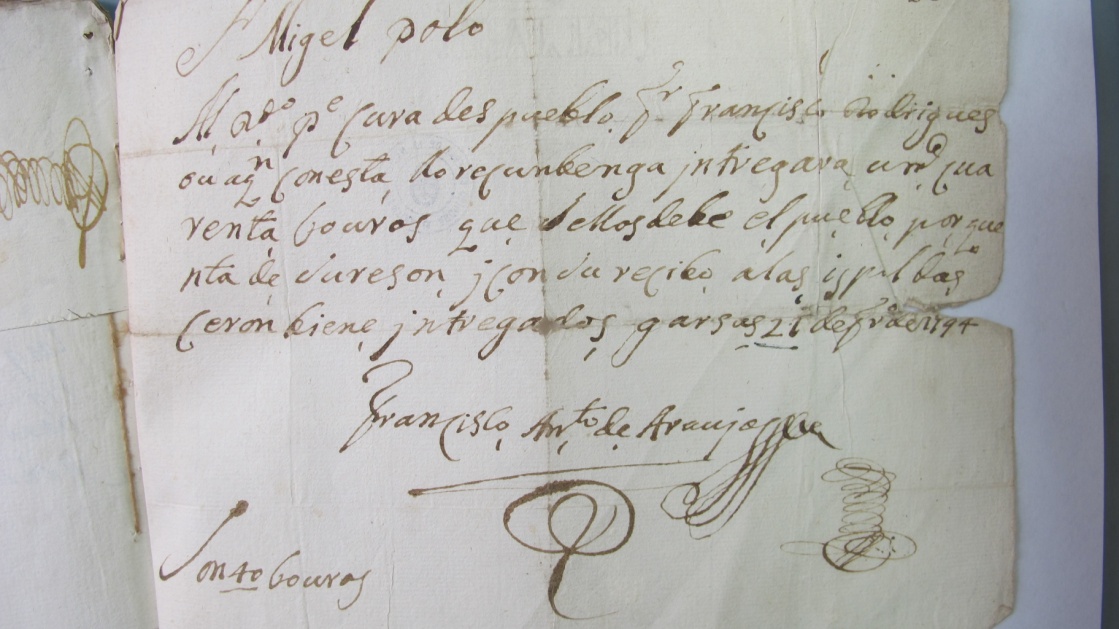 Sr Migel polo
M Rdo Pe Cura des pueblo Fr Francisco Rodrigues
ou aqn Conesta do recunbenga jntregara a vmd qua
renta bouros que sellos debe el pueblo por que
nta de su reson j con su recibo a las ispaldas
ceron biene jntregados garsas 21 de fro de 1794
Francisco Anto de Araujo
Son 40 bouros